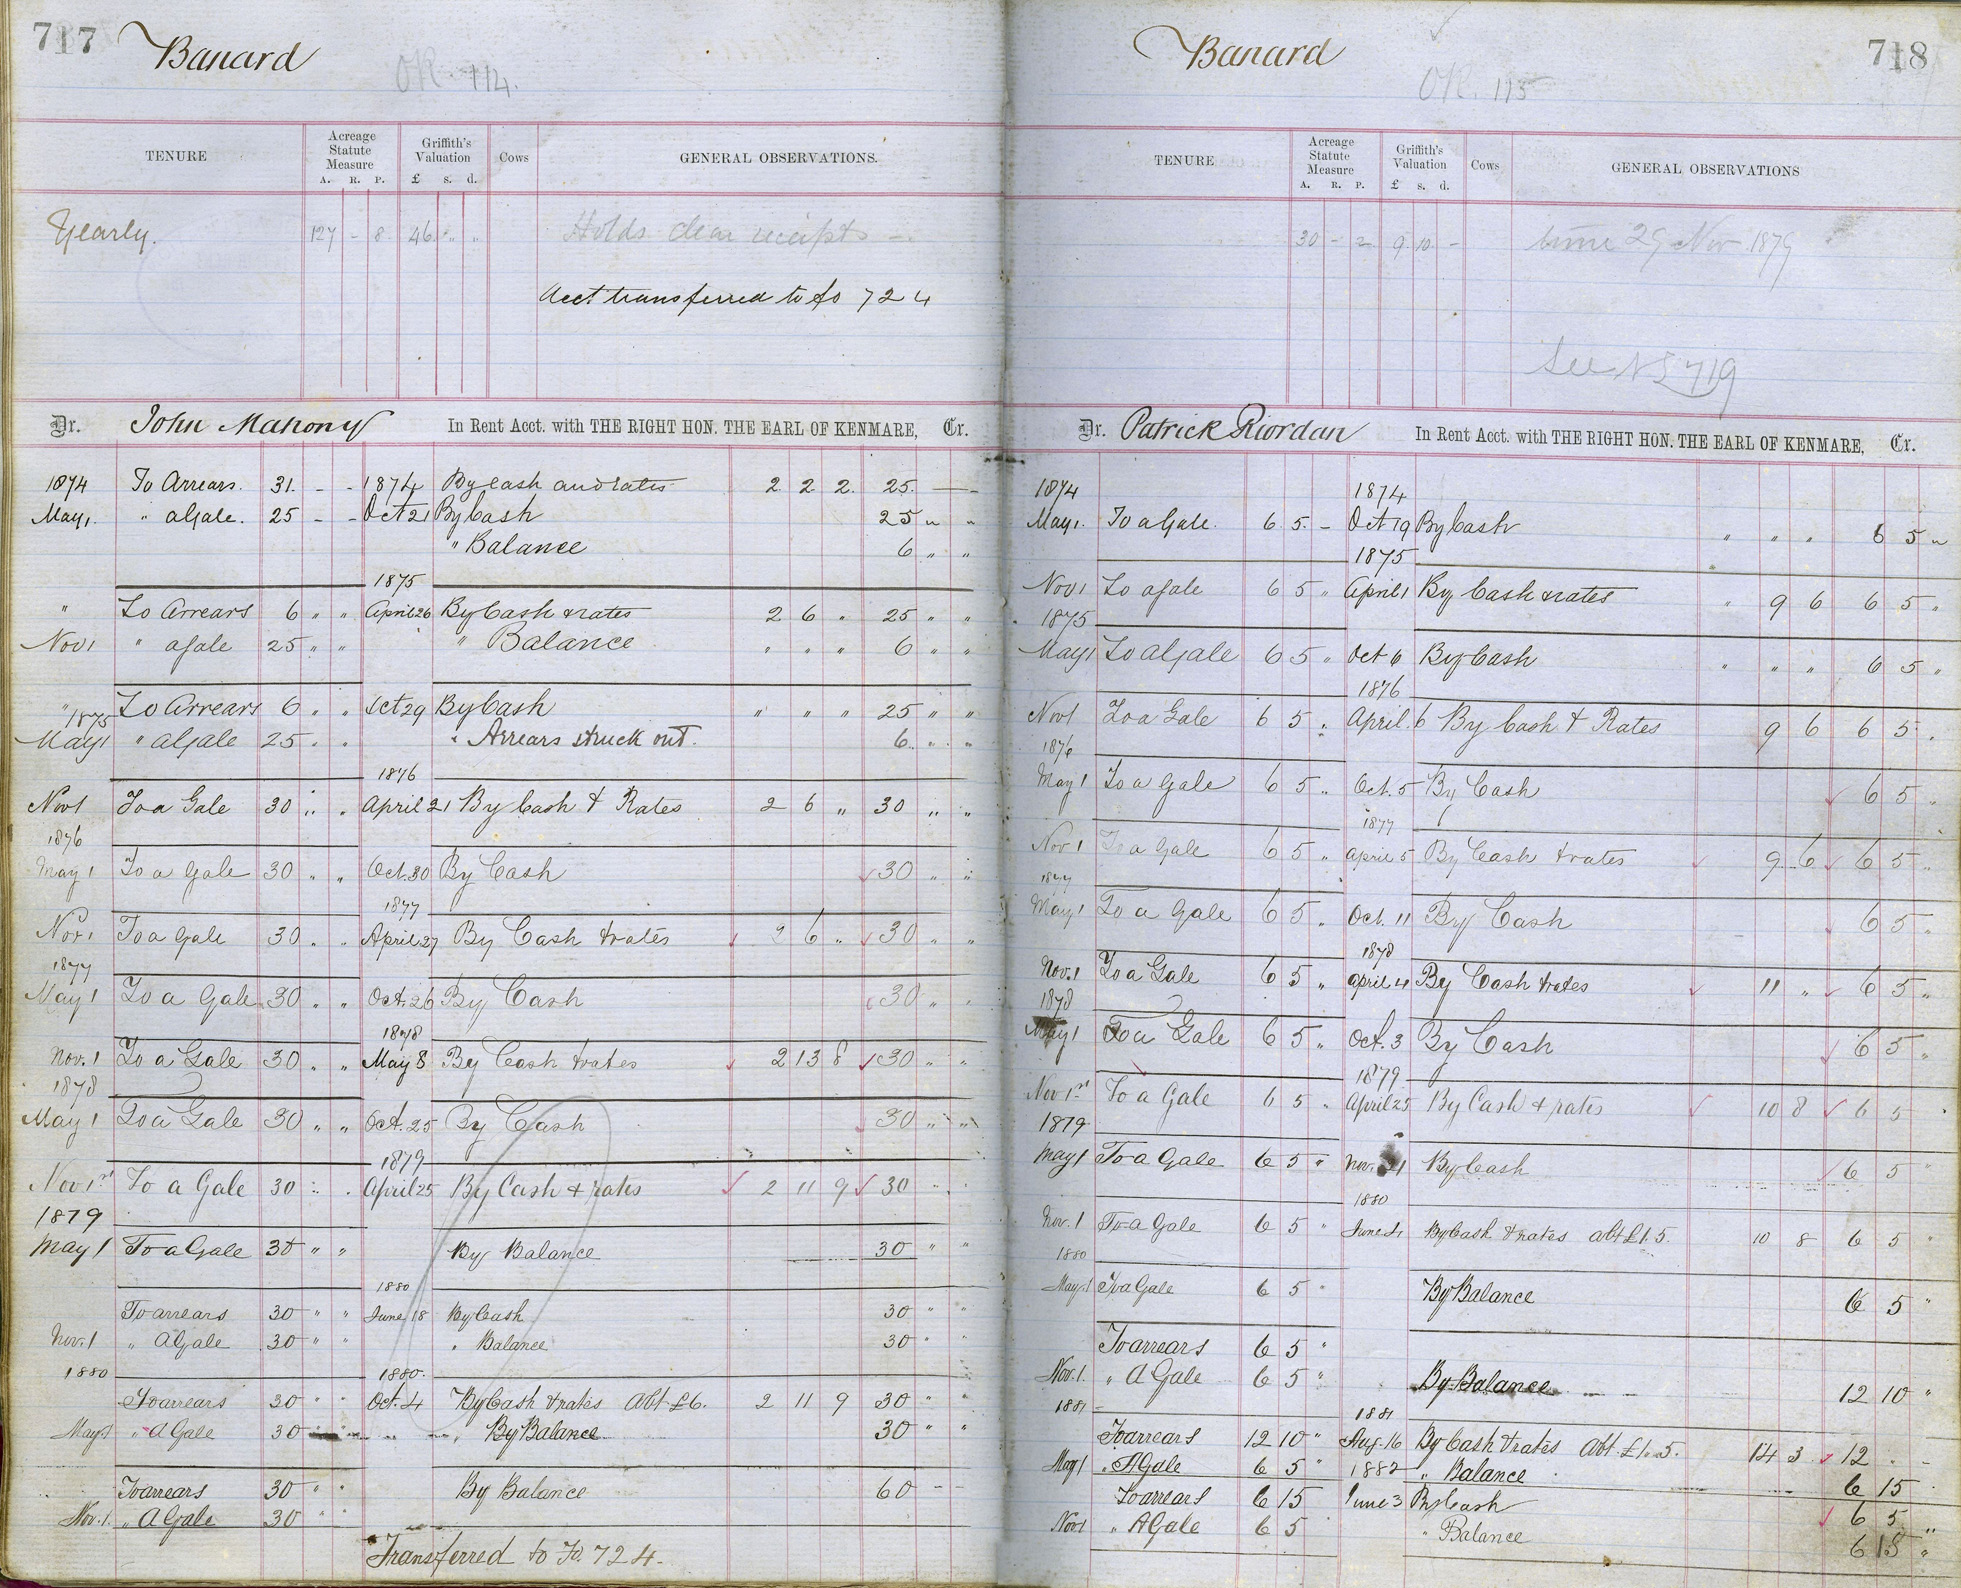 717 Banard
OR 114.
TENURE Acreage Statute Measure A. R. P. Griffith's Valuation £ s. d. Cows GENERAL OBSERVATIONS.
Yearly. 127 - 8 46 " " Holds clear receipts -
Acct transferred to fo 724
Dr. John Mahony In Rent Acct. with THE RIGHT HON. THE EARL OF KENMARE, Cr.
1874 To Arrears. 31 - - 1874 By cash and rates 2 2 2 25 - -
May 1. " a Gale. 25 - - Oct 21 By Cash 25 " "
" Balance 6 " "
1875
" To Arrears 6 " " April 26 By Cash & rates 2 6 " 25 " "
Nov 1 " a Gale 25 " " " Balance " " " 6 " "
" To Arrears 6 " " Oct 29 By Cash " " " 25 " "
1875
May 1 " a Gale 25 " " " Arrears struck out. 6 " "
1876
Nov 1 To a Gale 30 " " April 21 By Cash & Rates 2 6 " 30 " "
1876
May 1 To a Gale 30 " " Oct. 30 By Cash 30 " "
1877
Nov 1 To a Gale 30 " " April 27 By Cash & rates 2 6 " 30 " "
1877
May 1 To a Gale 30 " " Oct. 26 By Cash 30 " "
1878
Nov. 1 To a Gale 30 " " May 8 By Cash & rates 2 13 8 30 " "
1878
May 1 To a Gale 30 " " Oct. 25 By Cash 30 " "
1879
Nov 1st To a Gale 30 " " April 25 By Cash & rates 2 11 9 30 " "
1879
May 1 To a Gale 30 " " By Balance 30 " "
1880
To arrears 30 " " June 18 By Cash 30 " "
Nov. 1 " A Gale 30 " " " Balance 30 " "
1880 1880.
To arrears 30 " " Oct. 4 By Cash & rates Abt £6. 2 11 9 30 " "
May 1 " A Gale 30 By Balance 30 " "
To arrears 30 " " By Balance 60 - -
Nov. 1. " A Gale 30 " "
Transferred to Fo. 724.
Banard 718
OR. 115
TENURE Acreage Statute Measure A. R. P. Griffith's Valuation £ s. d. Cows GENERAL OBSERVATIONS
30 - 2 9 10 - time 29 Nov 1879
See 719
Dr. Patrick Riordan In Rent Acct. with THE RIGHT HON. THE EARL OF KENMARE, Cr.
1874 1874
May 1. To a Gale. 6 5 - Oct 19 By Cash " " " 6 5 "
1875
Nov 1 To a Gale 6 5 " April 1 By Cash & rates " 9 6 6 5 "
1875
May 1 To a Gale 6 5 " Oct 6 By Cash " " " 6 5 "
1876
Nov 1 To a Gale 6 5 " April. 6 By Cash & Rates 9 6 6 5 "
1876
May 1 To a Gale 6 5 " Oct. 5 By Cash 6 5 "
1877
Nov 1 To a Gale 6 5 " April 5 By Cash & rates 9 6 6 5 "
1877
May 1 To a Gale 6 5 " Oct. 11 By Cash 6 5 "
1878
Nov. 1 To a Gale 6 5 " April 4 By Cash & rates 11 " 6 5 "
1878
May 1 To a Gale 6 5 " Oct. 3 By Cash 6 5 "
1879
Nov 1st To a Gale 6 5 " April 25 By Cash & rates 10 8 6 5
1879
May 1 To a Gale 6 5 " Nov. 21 By Cash 6 5 "
1880
Nov. 1 To a Gale 6 5 " June 4 By Cash & rates abt £1.5. 10 8 6 5 "
1880
May. 1 To a Gale 6 5 " By Balance 6 5 "
To arrears 6 5 "
Nov. 1. " A Gale 6 5 " By Balance 12 10 "
1881 1881
To arrears 12 10 " Aug. 16 By Cash & rates Abt £1.5. 14 3 12 - -
May 1 " A Gale 6 5 " 1882 " Balance 6 15
To arrears 6 15 June 3 By Cash 6 5 "
Nov 1 " A Gale 6 5 " Balance 6 15 "